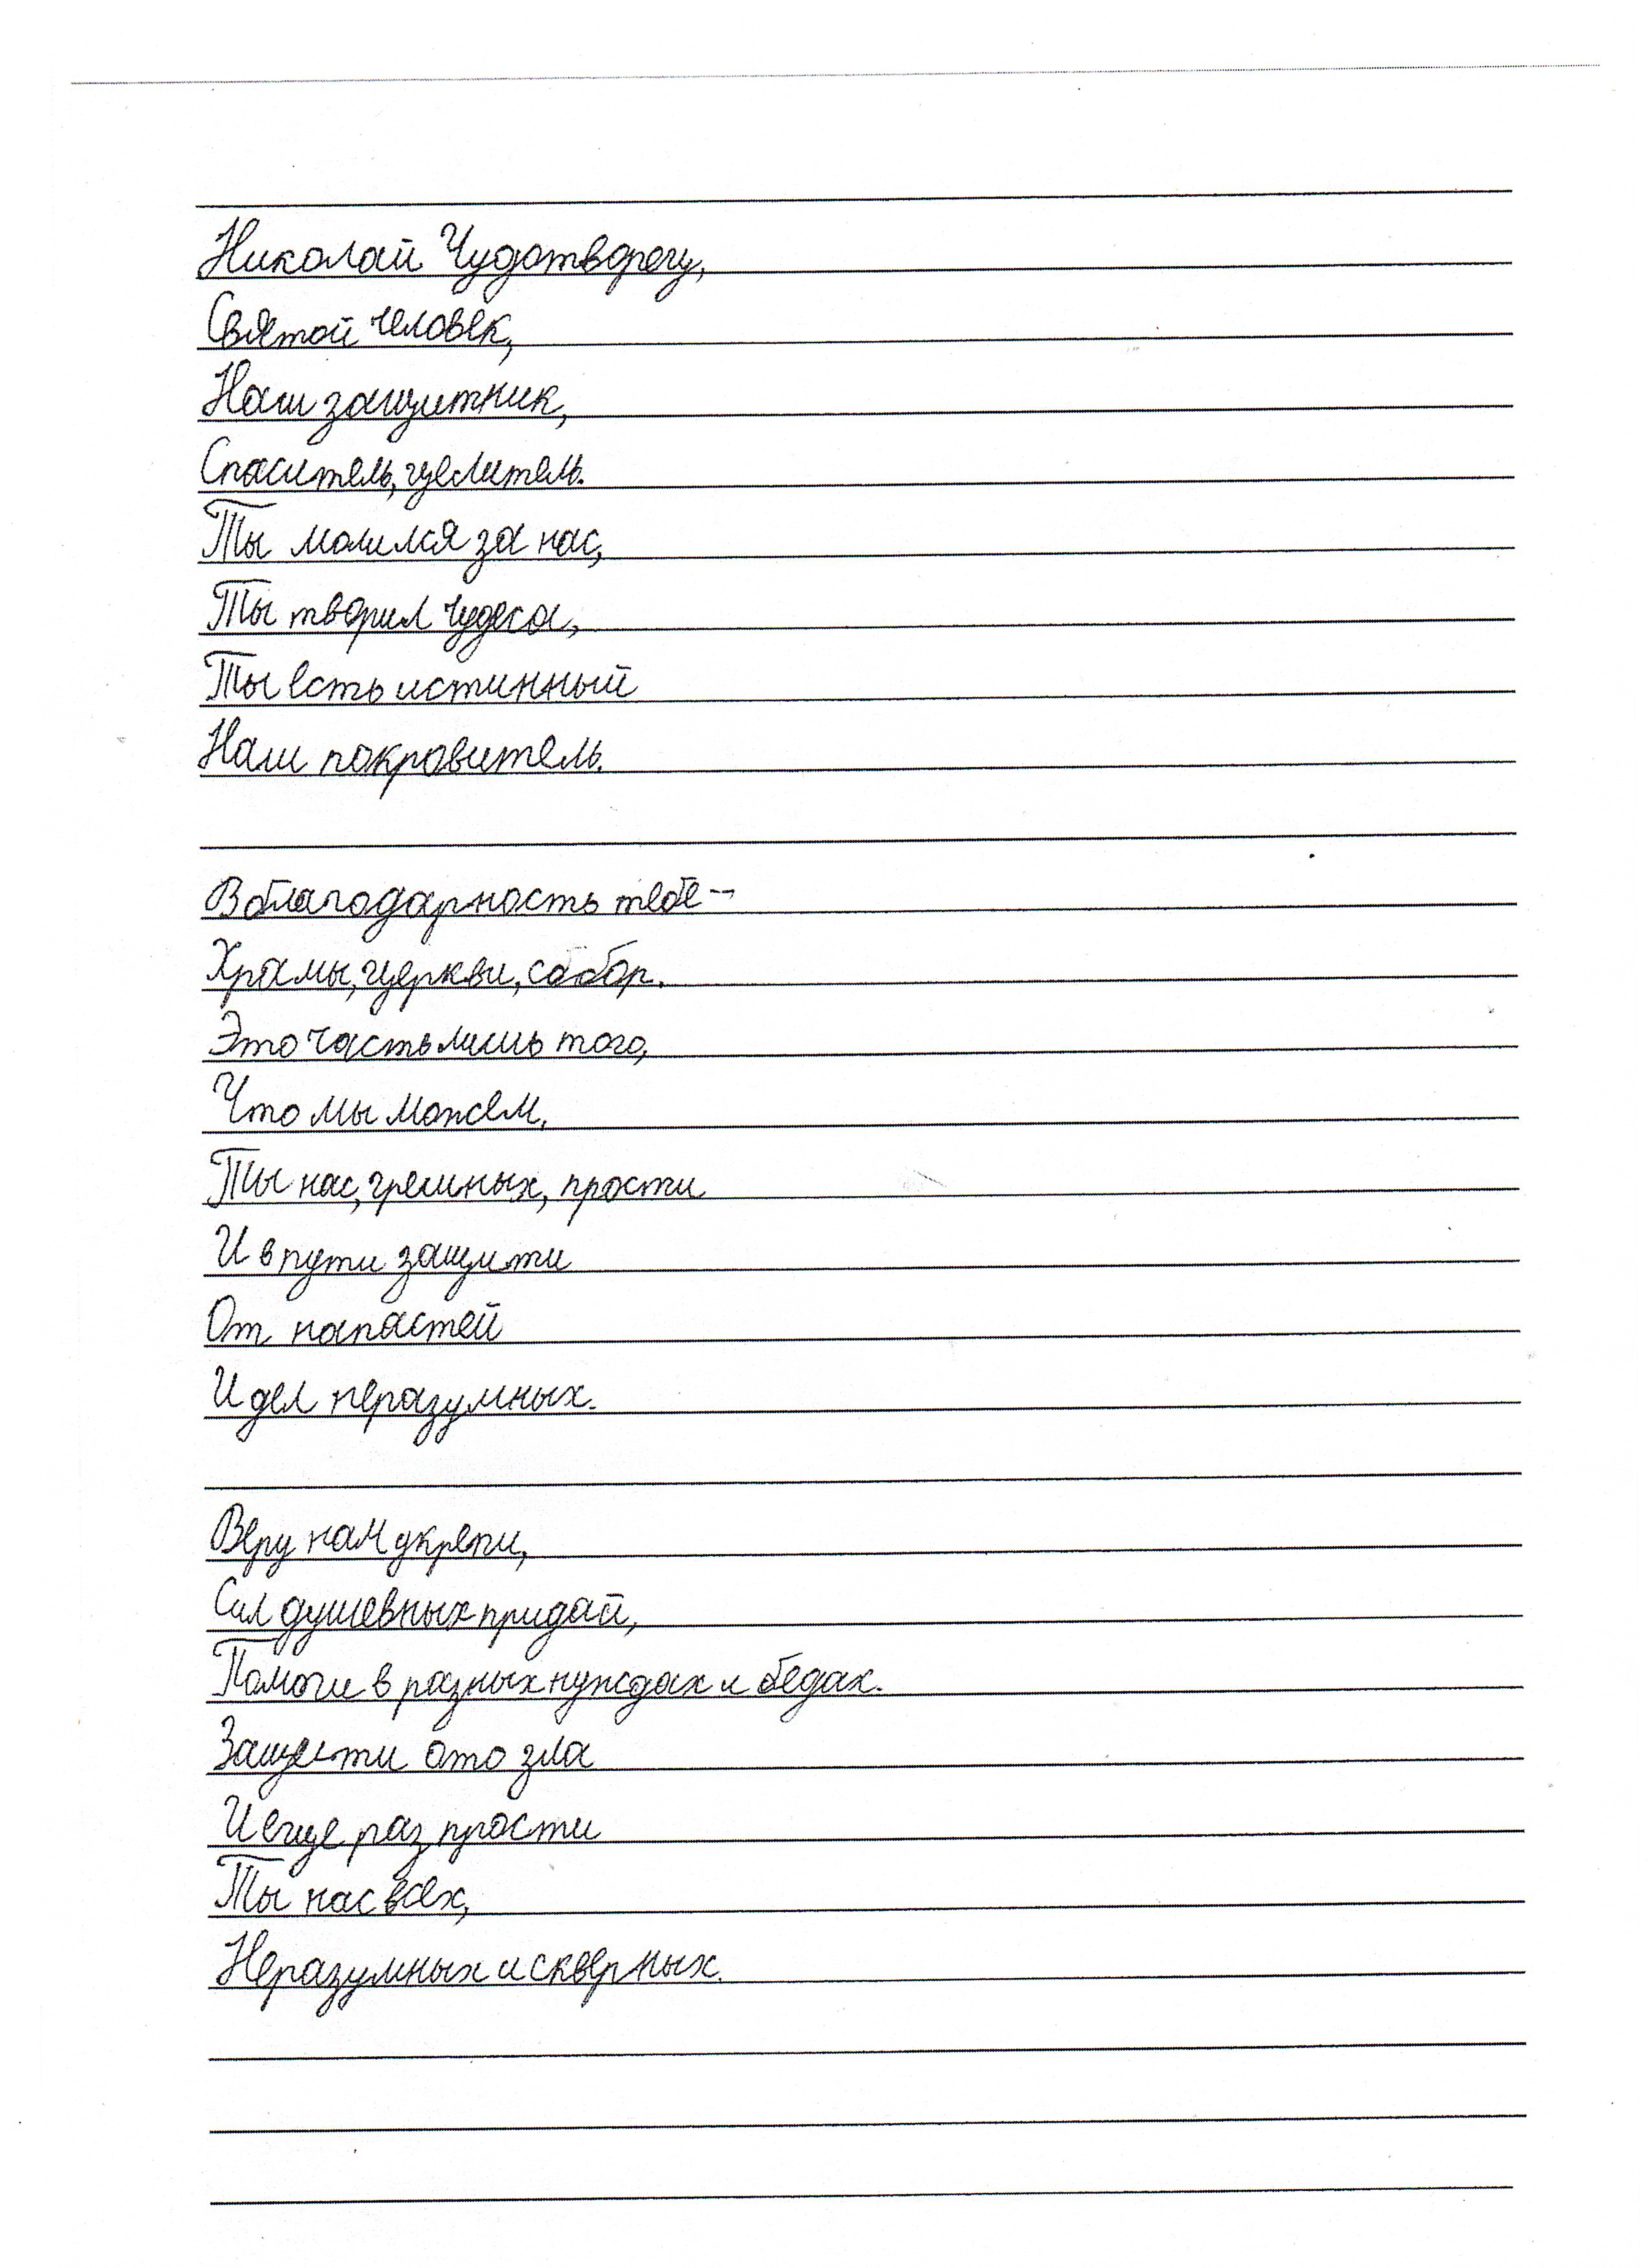 Николай Чудотворец,
Святой человек,
Наш защитник,
Спаситель, целитель.
Ты молился за нас,
Ты творил чудеса,
Ты есть истинный
Наш покровитель.
В благодарность тебе –
Храмы, церкви, собор.
Это часть лишь того,
Что мы можем,
Ты нас, грешных, прости
И в пути защити
От напастей
И дел неразумных.
Веру нам укрепи,
Сил душевных придай,
Помоги в разных нуждах и бедах.
Защити ото зла
И еще раз прости
Ты нас всех,
Неразумных и скверных.